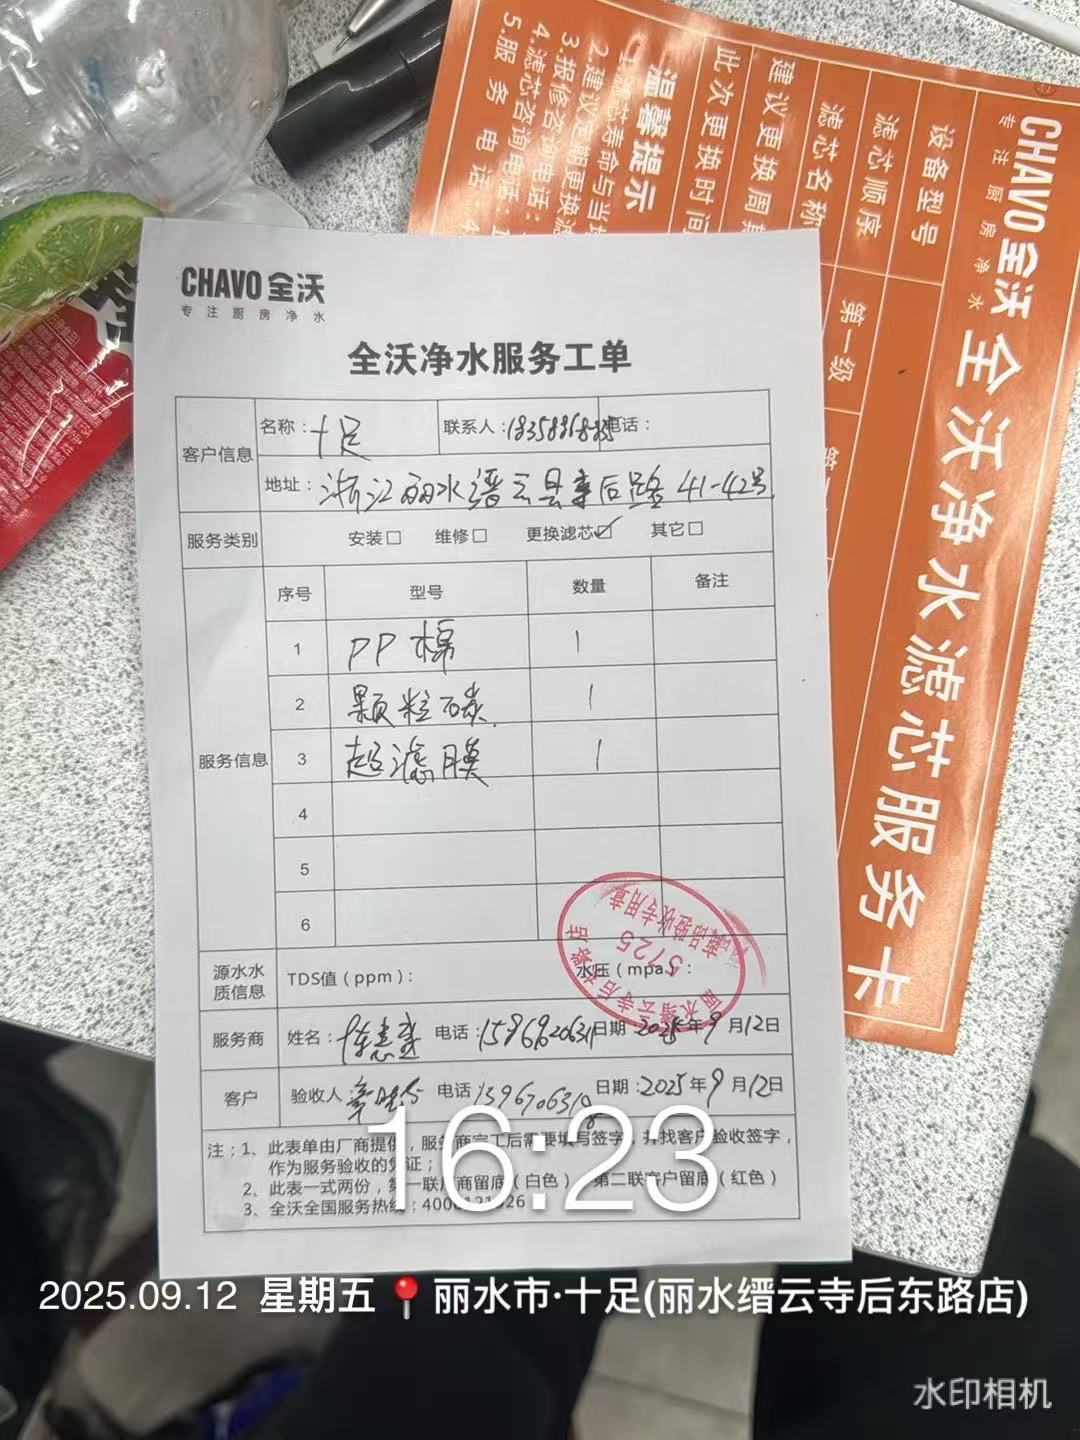 CHAVO 全沃
专注厨房净水
全沃净水服务工单
客户信息
名称：十足
联系人：
电话：
地址：浙江丽水缙云县寺后路41-42号
服务类别
安装□ 维修□ 更换滤芯☑ 其它□
服务信息
序号 型号 数量 备注
1 PP棉 1
2 颗粒碳 1
3 超滤膜 1
4
5
6
源水水质信息
TDS值（ppm）：
水压（mpa）：
服务商 姓名： 电话： 日期：2025年9月12日
客户 验收人 电话 日期：2025年9月12日
注：1、此表单由厂商提供，服务商完工后需要填写签字，并找客户验收签字，
作为服务验收的凭证；
2、此表一式两份，第一联厂商留底（白色） 第二联客户留底（红色）
3、全沃全国服务热线：
5725
商品验收专用章
CHAVO全沃
专注厨房净水
全沃净水滤芯服务卡
设备型号
滤芯顺序
第一级
滤芯名称
建议更换周期
此次更换时间
温馨提示
滤芯寿命与当地
2.建议定期更换滤
3.报修咨询电话：
4.滤芯咨询电话：1
5.服务电话：4
16:23
2025.09.12 星期五 丽水市·十足(丽水缙云寺后东路店)
水印相机